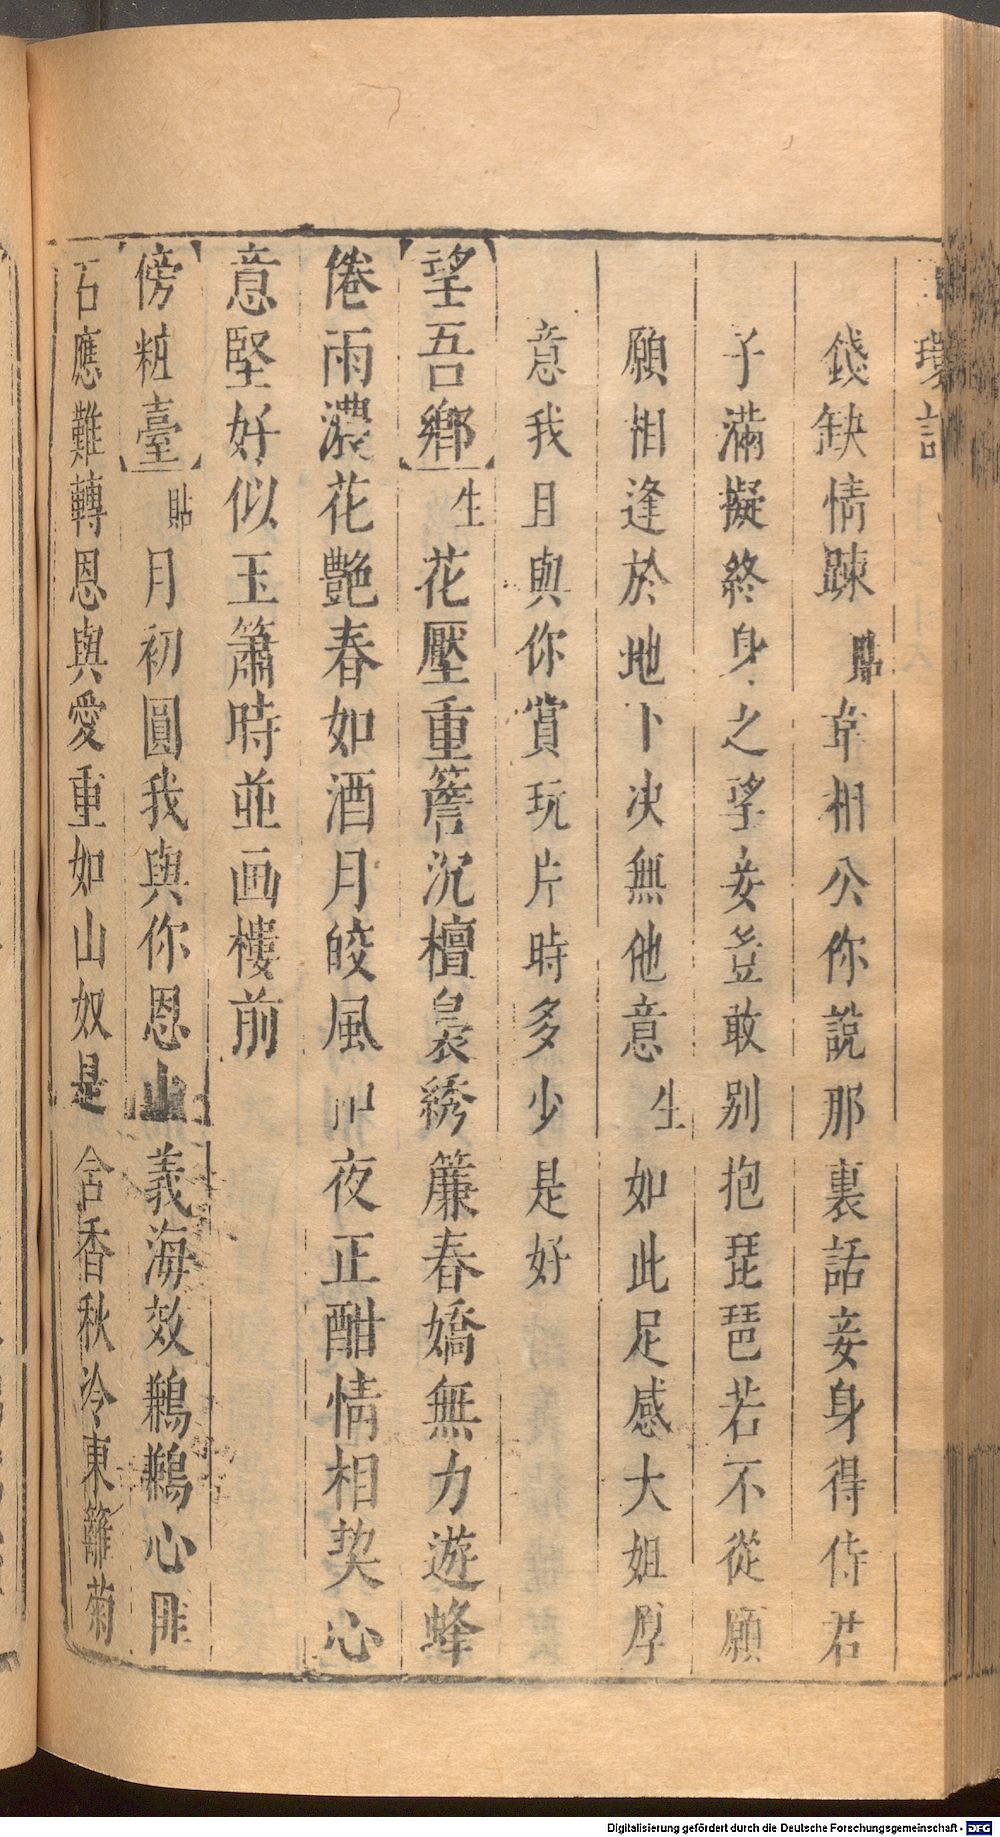 環記
錢缺情踈 貼 韋相公你說那裏話妾身得侍君
子滿擬終身之望妾豈敢别抱琵琶若不從願
願相逢於地下决無他意 生 如此足感大姐厚
意我且與你賞玩片時多少是好
【望吾鄉】 生 花壓重簷沉檀裊綉簾春嬌無力遊蜂
倦雨濃花艷春如酒月皎風 夜正酣情相契心
意堅好似玉簫時並画樓前
【傍粧臺】 貼 月初圓我與你恩山義海效鶼鶼心匪
石應難轉恩與愛重如山奴是含香秋冷東籬菊
Digitalisierung gefördert durch die Deutsche Forschungsgemeinschaft - DFG